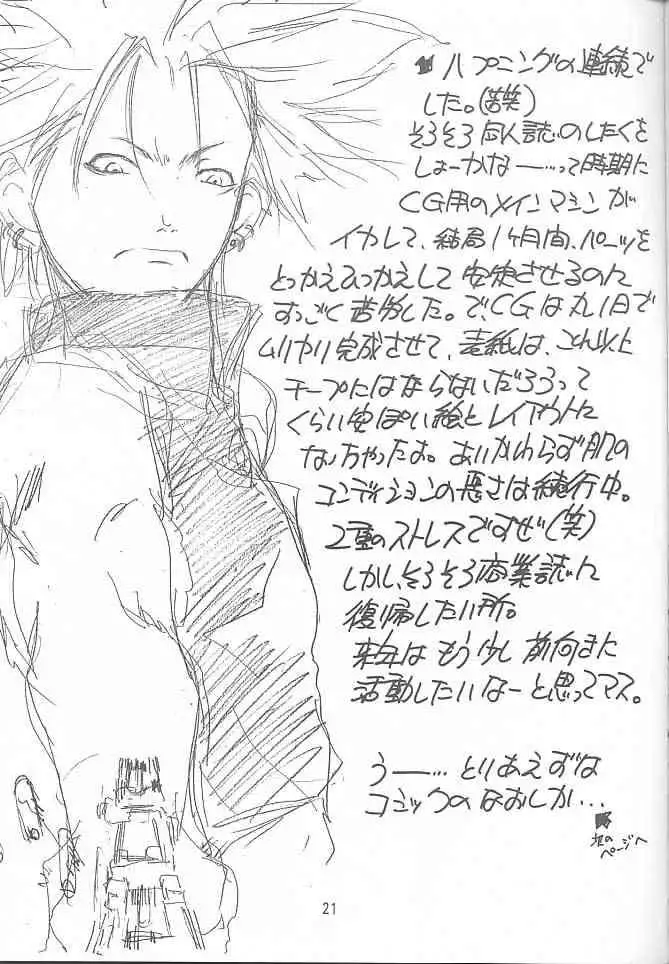 ハプニングの連続で
した。(苦笑)
そろそろ同人誌のしたくを
しょーかなー…って時期に
CG用のメインマシンが
イカレて、結局1ヶ月間、パーツを
とっかえひっかえして安定させるのに
すっごく苦労した。で、CGは丸1日で
ムリヤリ完成させて、表紙は、これ以上
チープにはならないだろうって
くらい安ぽい絵とレイアウトに
なっちゃったよ。あいかわらず肌の
コンディションの悪さは続行中。
2重のストレスですぜ(笑)
しかし、そろそろ商業誌に
復帰したい所。
来年はもう少し前向きに
活動したいなーと思ってマス。
うー…とりあえずは
コミックのなおしか…
次の
ページへ
21